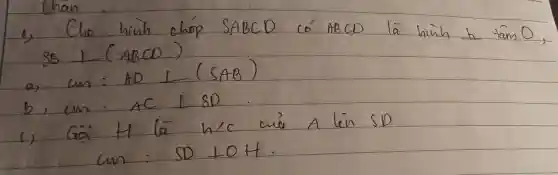 Chọn
1, Cho hình chóp SABCD có ABCD là hình h tâm O,
SB ⊥ (ABCD)
a, cm : AD ⊥ (SAB)
b, cm : AC ⊥ SD.
c, Gọi H là h/c của A lên SD
cm : SD ⊥ OH.